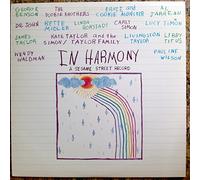 GEORGE BENSON
THE DOOBIE BROTHERS
ERNIE AND COOKIE MONSTER
AL JARREAU
DR. JOHN
BETTE MIDLER
LINDA RONSTADT
CARLY SIMON
LUCY SIMON
JAMES TAYLOR
KATE TAYLOR and the SIMON/TAYLOR FAMILY
LIVINGSTON TAYLOR
LIBBY TITUS
WENDY WALDMAN
PAULINE WILSON
IN HARMONY
A SESAME STREET RECORD